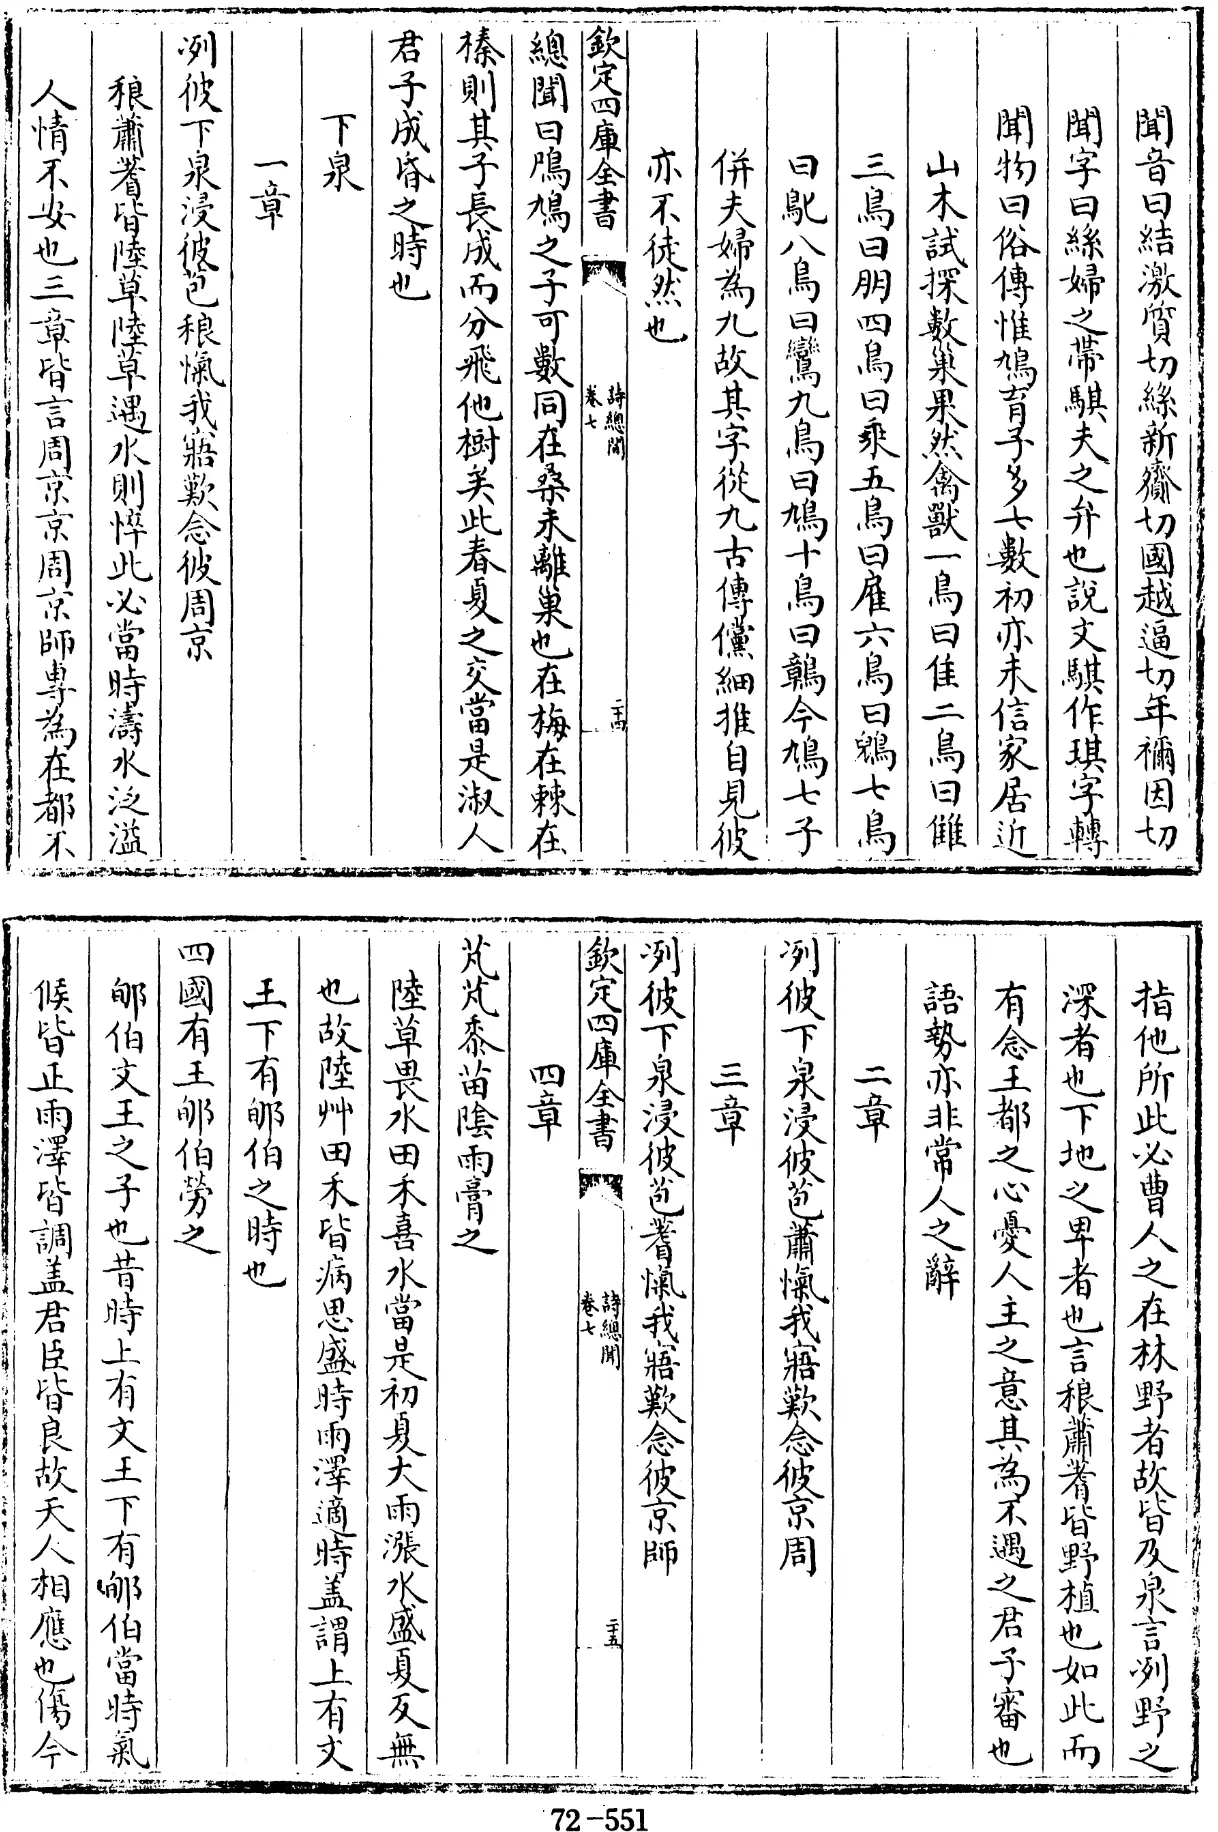 聞音曰結激質切絲新齎切國越逼切年禰因切
聞字曰絲婦之帶騏夫之弁也說文騏作琪字轉
聞物曰俗傳惟鳩育子多七數初亦未信家居近
山木試探數巢果然禽獸一鳥曰隹二鳥曰雔
三鳥曰朋四鳥曰乘五鳥曰雇六鳥曰鶂七鳥
曰鳦八鳥曰鸞九鳥曰鳩十鳥曰鶉今鳩七子
併夫婦為九故其字從九古傳儻細推自見彼
亦不徒然也
欽定四庫全書
詩總聞
卷七
二十四
總聞曰鳲鳩之子可數同在桑未離巢也在梅在棘在
榛則其子長成而分飛他樹矣此春夏之交當是淑人
君子成昏之時也
下泉
一章
冽彼下泉浸彼苞稂愾我寤歎念彼周京
稂蕭蓍皆陸草陸草遇水則悴此必當時濤水泛溢
人情不安也三章皆言周京京周京師專為在都不
指他所此必曹人之在林野者故皆及泉言冽野之
深者也下地之卑者也言稂蕭蓍皆野植也如此而
有念王都之心憂人主之意其為不遇之君子審也
語勢亦非常人之辭
二章
冽彼下泉浸彼苞蕭愾我寤歎念彼京周
三章
冽彼下泉浸彼苞蓍愾我寤歎念彼京師
欽定四庫全書
詩總聞
卷七
二十五
四章
芃芃黍苗陰雨膏之
陸草畏水田禾喜水當是初夏大雨漲水盛夏反無
也故陸艸田禾皆病思盛時雨澤適時盖謂上有文
王下有郇伯之時也
四國有王郇伯勞之
郇伯文王之子也昔時上有文王下有郇伯當時氣
候皆正雨澤皆調盖君臣皆良故天人相應也傷今
72-551